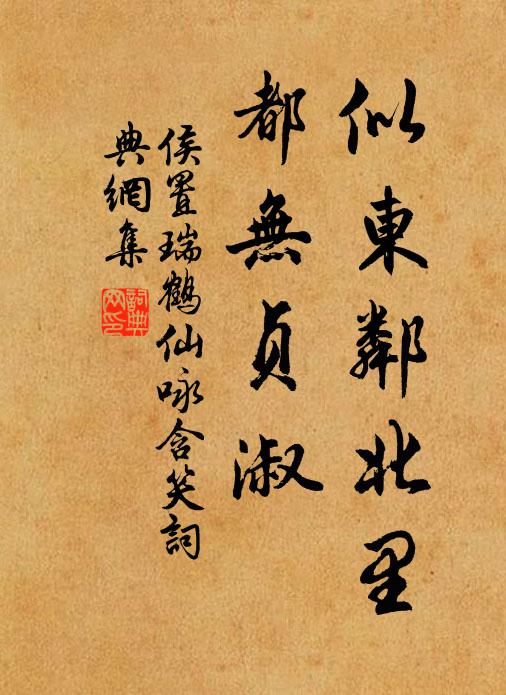 似東鄰北里
都無貞淑
侯置瑞鶴仙咏含笑詞
典網集
詞典
网印